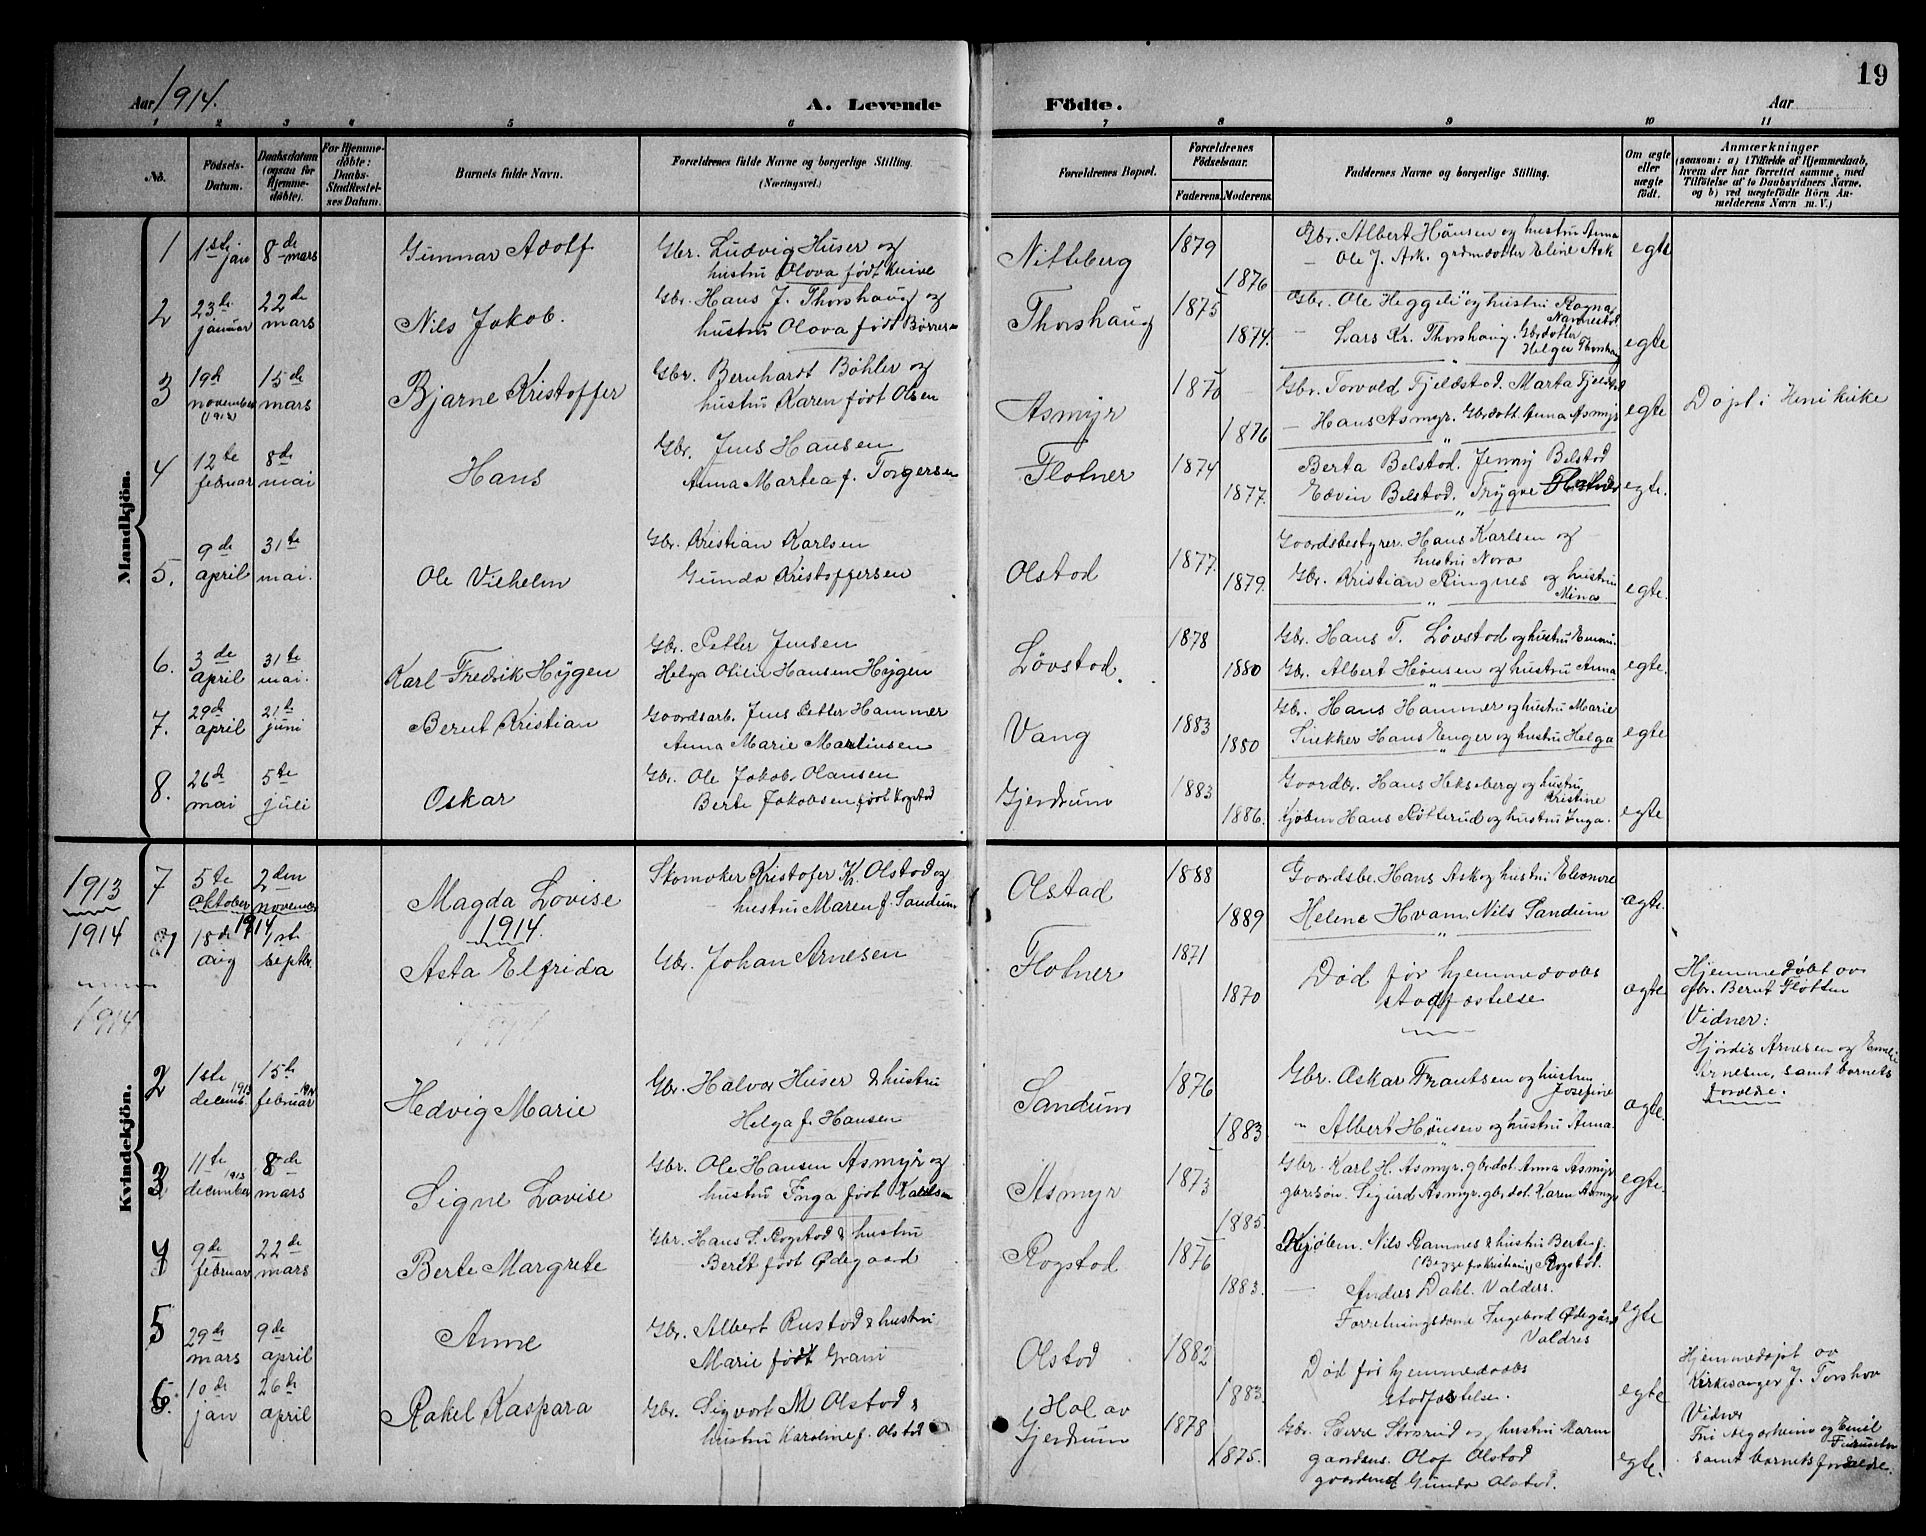 Aar 1914.
A. Levende Födte.
Aar
19
1 2 3 4 5 6 7 8 9 10 11
No.
Födsels-Datum.
Daabsdatum (ogsaa for Hjemmedöbte).
For Hjemmedøbte: Daabs-Stadfæstelses Datum.
Barnets fulde Navn.
Forældrenes fulde Navne og borgerlige Stilling.
(Næringsvei.)
Forældrenes Bopæl.
Forældrenes Födselsaar.
Faderens. Moderens.
Faddernes Navne og borgerlige Stilling.
Om ægte eller uægte födt.
Anmærkninger
(saasom: a) i Tilfælde af Hjemmedaab, hvem der har forrettet samme, med Tilföielse af to Daabsvidners Navne, og b) ved uægtefödte Börn Anmelderens Navn m. V.)
Mandkjön.
1 1ste jan 8de mars Gunnar Adolf Gbr. Ludvig Huser og
hustru Olova født Knive Nitteberg 1879 1876 Gbr. Albert Hånsen og hustru Anna
Ole J. Ask. grdmdotter Eline Ask egte
2 23de januar 22de mars Nils Jakob. Gbr. Hans J. Thorshaug og
hustru Olova født Thorshaug 1875 1874. Gbr. Ole Heggeli og hustru Ragna
Lars Kr. Thorshaug. Gbrdotter
Helga Thorshaug egte
3 19de november (1913) 15de mars Bjarne Kristoffer Gbr. Bernhardt Bøhler og
hustru Karen født Olsen Asmyr 1870 1876 Gbr. Torvald Fjeldstad. Marta
Hans Asmyr. Gbrdott. Anna Asmyr egte Døpt i Heni kirke
4 12te februar 8de mai Hans Gbr. Jens Hansen
Anna Martea f. Torgersen Flotner 1874 1877. Berta Belstad. Jenny Belstad
Edvin Belstad. Trygve Flatner egte.
5. 9de april 31te mai. Ole Vilhelm Gbr. Kristian Karlsen
Gunda Kristoffersen Olstad 1877. 1879. Gaardsbestyrer. Hans Karlsen og
hustru Nora
Gbr. Kristian Ringnes og hustru
Mina egte.
6. 3de april 31te mai. Karl Fredrik Høgen Gbr. Petter Jensen
Helga Otilie Hansen Høgen Løvstad. 1878 1880 Gbr. Hans T. Løvstad og hustru
Gbr. Albert Hønsen og hustru Anna egte.
7. 29de april 21te juni Bernt Kristian Gaardsarb. Jens Petter Hammer
Anna Marie Martinsen Vang 1883 1880 Gbr. Hans Hammer og hustru Marie
Snekker Hans Enger og hustru Helga egte
8. 26de mai 5te juli Oskar Gbr. Ole Jakob Olausen
Berte Jakobsen født Rogstad Gjerdrum 1883 1886. Gaardbr. Hans Hekseberg og hustru
Kristine
Kjøbm Hans Røtterud og hustru Inga. egte
Kvindekjön.
1913 7 5te oktober 2den november Magda Lovise Skomaker Kristofer Kr. Olstad og
hustru Maren f. Sandum Olstad 1888 1889 Gaardsbr. Hans Ask og hustru Eleonore
Helene Hvam. Nils Sandum ægte.
1914 1914 1914.
1 18de aug 1ste septbr. Asta Elfrida Gbr. Johan Arnesen Flotner 1871 1870 Død før hjemmedaabs
stadfæstelse ægte Hjemmedøbt av
gbr. Bernt Fløtten
Vidner:
Hjørdis Arnesen og
Arnesen, samt barnets
foreldre.
1914
2 1ste decemb. 1913 15de februar 1914 Hedvig Marie Gbr. Halvor Huser & hustru
Helga f. Hansen Sandum 1876 1883 Gbr. Oskar Frantsen og hustru
Josefine
" Albert Hønsen og hustru Anna ægte.
3 11te december 1913 8de mars Signe Lovise Gbr. Ole Hansen Asmyr og
hustru Inga født Karlsen Asmyr 1873 1885. Gbr. Karl H. Asmyr. gbrdot. Anna Asmyr
gbrsøn. Sigurd Asmyr. gbrdot. Karen Asmyr egte.
4 9de februar 22de mars Berte Margrete Gbr. Hans S. Rogstad & hustru
Berit født Ødegaard Rogstad 1876 1883. Kjøbm. Nils Ramnes & hustru Berte f.
(Begge fra Kristiania) Rogstad.
Anders Dahl. Valders.
Forretningsdame Ingebord Ødegård
Valdres egte
5 29de mars 9de april Anne Gbr. Albert Rustad & hustru
Marie født Grani Olstad 1882 1883. Død før hjemmedaabs
stadfæstelse. egte Hjemmedøpt av
Kirkesanger J. Torshov
Vidner
samt barnets foreldre.
6. 10de jan 26de april Rakel Kaspara Gbr. Sigvart M Olstad &
hustru Karoline f. Olstad Gjerdrum 1878 1875. Gbr. Storsrud og hustru Maren
gaardens. Olaf Olstad
Gunda Olstad. egte.